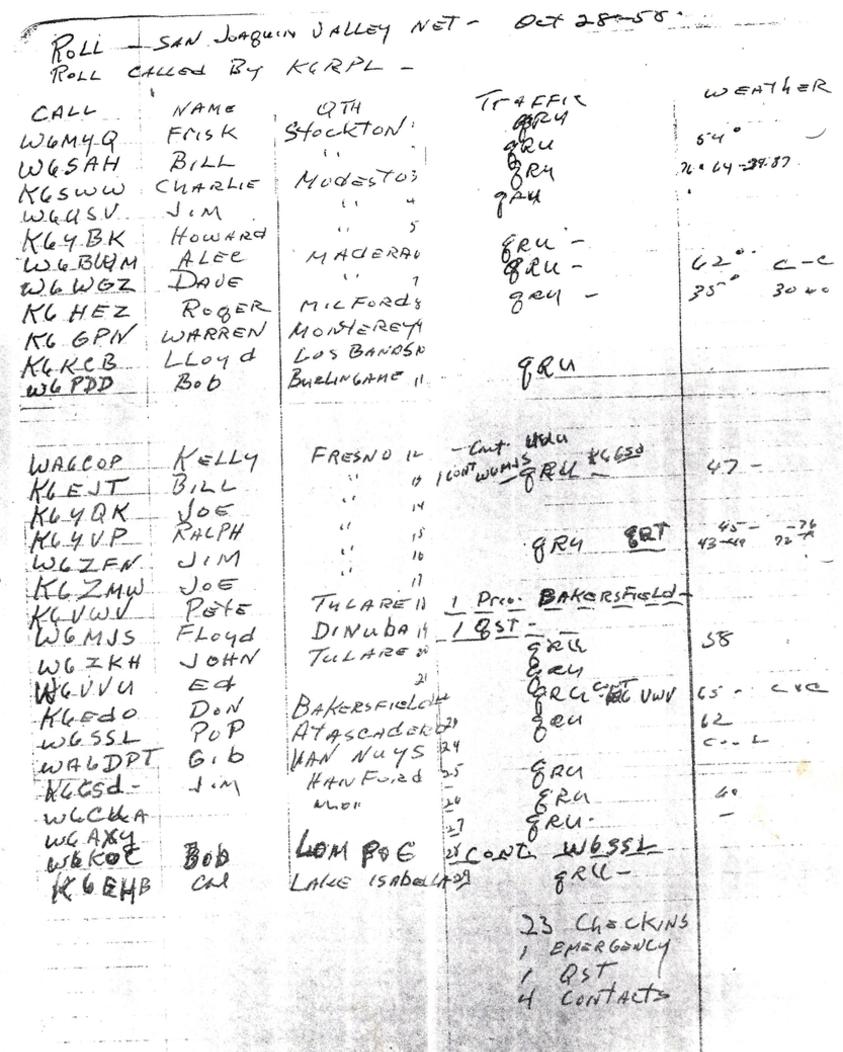 ROLL - SAN JOAQUIN VALLEY NET - Oct 28-58.
ROLL CALLED BY K6RPL -
CALL NAME QTH TRAFFIC WEATHER
W6MYQ FRISK STOCKTON QRU
W6SAH BILL " QRU 54°
K6SWW CHARLIE MODESTO 3 QRU
W6USV JIM " 4 QRU
K6YBK HOWARD " 5
ALEC MADERA QRU -
W6WGZ DAVE " 7 QRU - 62° C-C
K6HEZ ROGER MILFORD 8 QRU - 35°
K6GPN WARREN MONTEREY 9
K6KCB LLOYD LOS BANOS 10
W6PDD Bob BURLINGAME 11 QRU
WA6COP KELLY FRESNO 12 - Cont.
K6EJT BILL " 13 1 CONT W6MJS QRU - K6GSd 47 -
K6YQK JOE " 14
K6YVP RALPH " 15 QRU QRT 45 -
W6ZFN JIM " 16
K6ZMW JOE " 17
K6VWV PETE TULARE 18 1 BAKERSFIELD -
W6MJS FLOYD DINUBA 19 1 QST -
W6ZKH JOHN TULARE 20 QRU 58
W6VVU Ed 21 QRU
K6EdO DON BAKERSFIELD QRU VWV 65 -
W6SSL POP ATASCADERO 23 QRU 62
WA6DPT Gib VAN NUYS 24 COOL
K6GSd - Jim HANFORD 25 QRU
26 QRU 60
W6AXY 27 QRU. -
W6KOC BOB LOMPOC 28 CONT W6SSL
K6EHB Cal LAKE ISABELLA 29 QRU -
23 CHECKINS
1 EMERGENCY
1 QST
4 CONTACTS